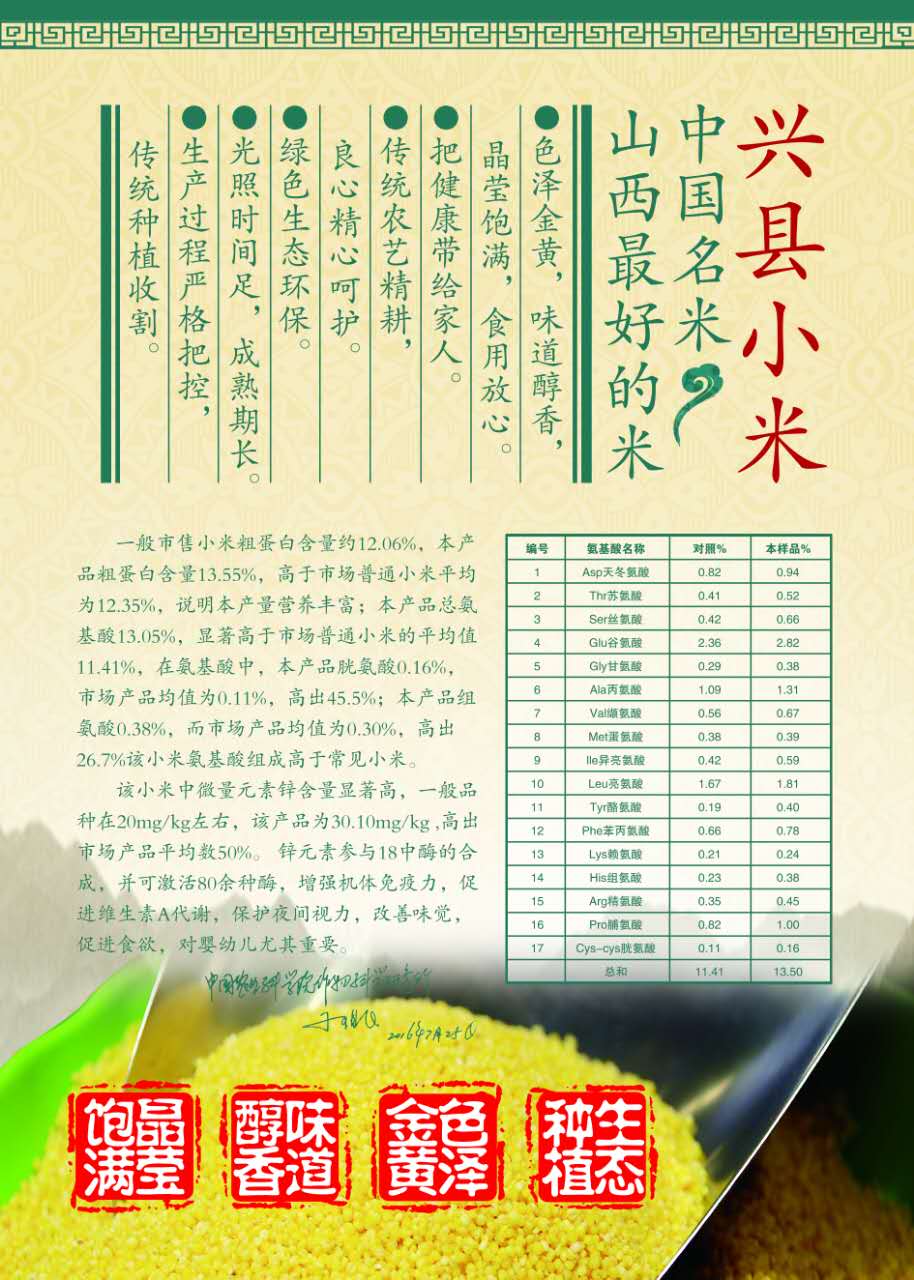 兴县小米
中国名米
山西最好的米
●色泽金黄，味道醇香，
晶莹饱满，食用放心。
●把健康带给家人。
●传统农艺精耕，
良心精心呵护。
●绿色生态环保。
●光照时间足，成熟期长。
●生产过程严格把控，
传统种植收割。
一般市售小米粗蛋白含量约12.06%，本产
品粗蛋白含量13.55%，高于市场普通小米平均
为12.35%，说明本产量营养丰富；本产品总氨
基酸13.05%，显著高于市场普通小米的平均值
11.41%，在氨基酸中，本产品胱氨酸0.16%，
市场产品均值为0.11%，高出45.5%；本产品组
氨酸0.38%，而市场产品均值为0.30%，高出
26.7%该小米氨基酸组成高于常见小米。
该小米中微量元素锌含量显著高，一般品
种在20mg/kg左右，该产品为30.10mg/kg ,高出
市场产品平均数50%。 锌元素参与18中酶的合
成，并可激活80余种酶，增强机体免疫力，促
进维生素A代谢，保护夜间视力，改善味觉，
促进食欲，对婴幼儿尤其重要。
中国农业科学院作物科学研究所
2016年7月25日
编号 氨基酸名称 对照% 本样品%
1 Asp天冬氨酸 0.82 0.94
2 Thr苏氨酸 0.41 0.52
3 Ser丝氨酸 0.42 0.66
4 Glu谷氨酸 2.36 2.82
5 Gly甘氨酸 0.29 0.38
6 Ala丙氨酸 1.09 1.31
7 Val缬氨酸 0.56 0.67
8 Met蛋氨酸 0.38 0.39
9 Ile异亮氨酸 0.42 0.59
10 Leu亮氨酸 1.67 1.81
11 Tyr酪氨酸 0.19 0.40
12 Phe苯丙氨酸 0.66 0.78
13 Lys赖氨酸 0.21 0.24
14 His组氨酸 0.23 0.38
15 Arg精氨酸 0.35 0.45
16 Pro脯氨酸 0.82 1.00
17 Cys-cys胱氨酸 0.11 0.16
总和 11.41 13.50
晶莹饱满
味道醇香
色泽金黄
生态种植